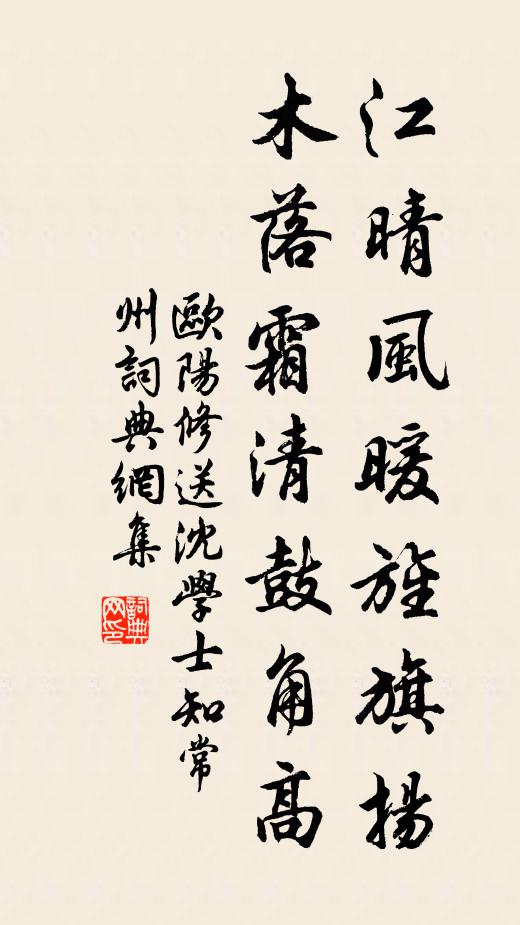 江晴風暖旌旗揚
木落霜清鼓角高
歐陽修送沈學士知常
州詞典網集
詞典网印